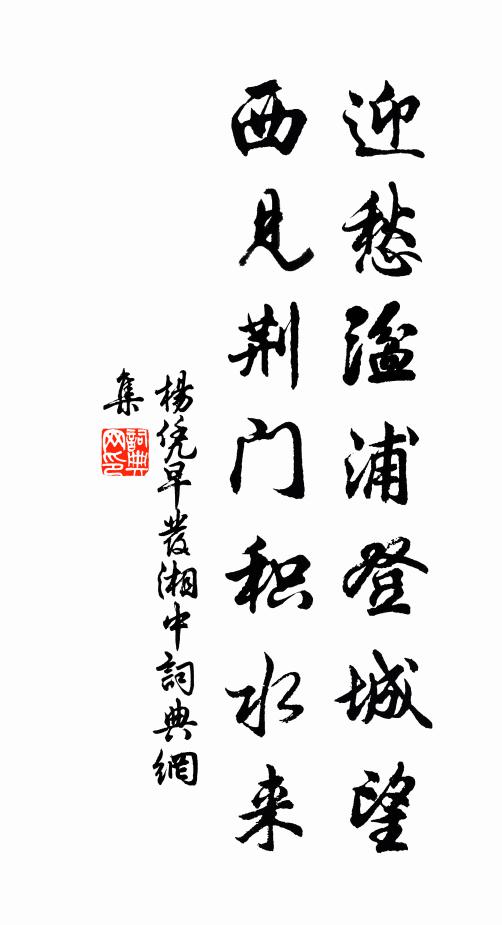 迎愁湓浦登城望
西见荆门积水来
楊凭早發湘中詞典網
集
詞典网印